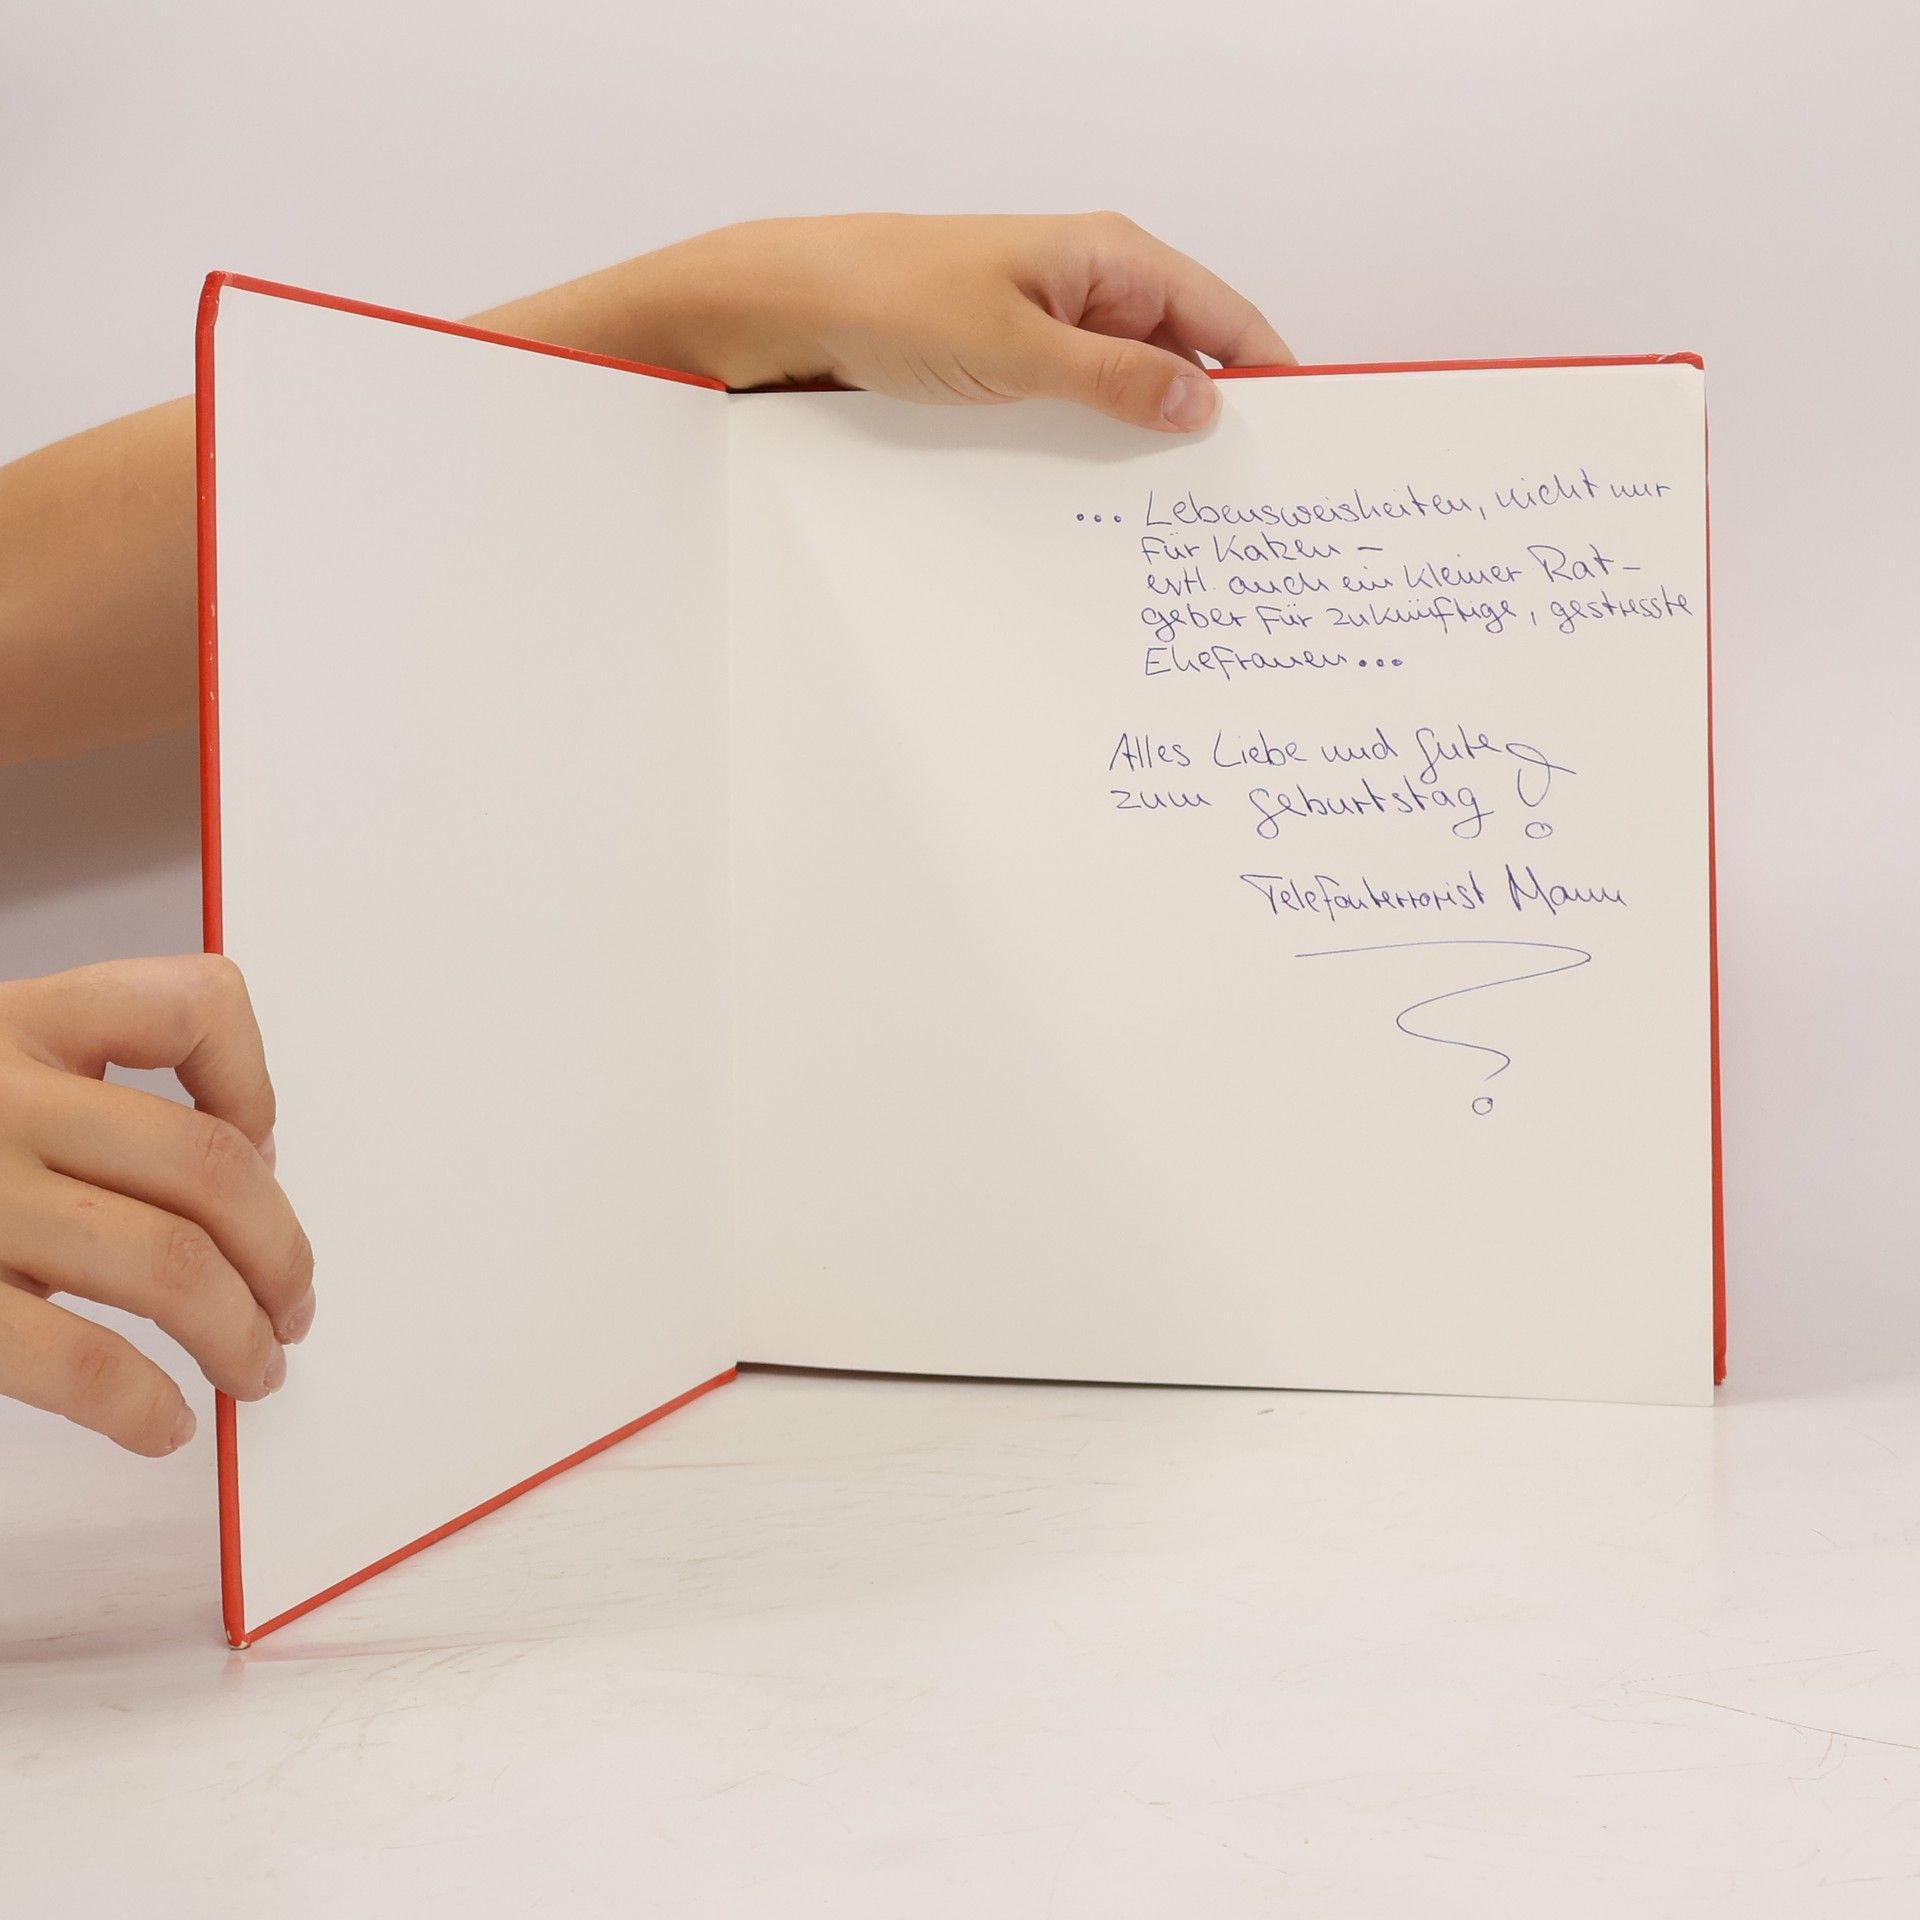 ... Lebensweisheiten, nicht nur
für Katzen –
evtl. auch ein kleiner Rat-
geber für zukünftige, gestresste
Ehefrauen...
Alles Liebe und Gute
zum Geburtstag!
Telefonterrorist Mann
?